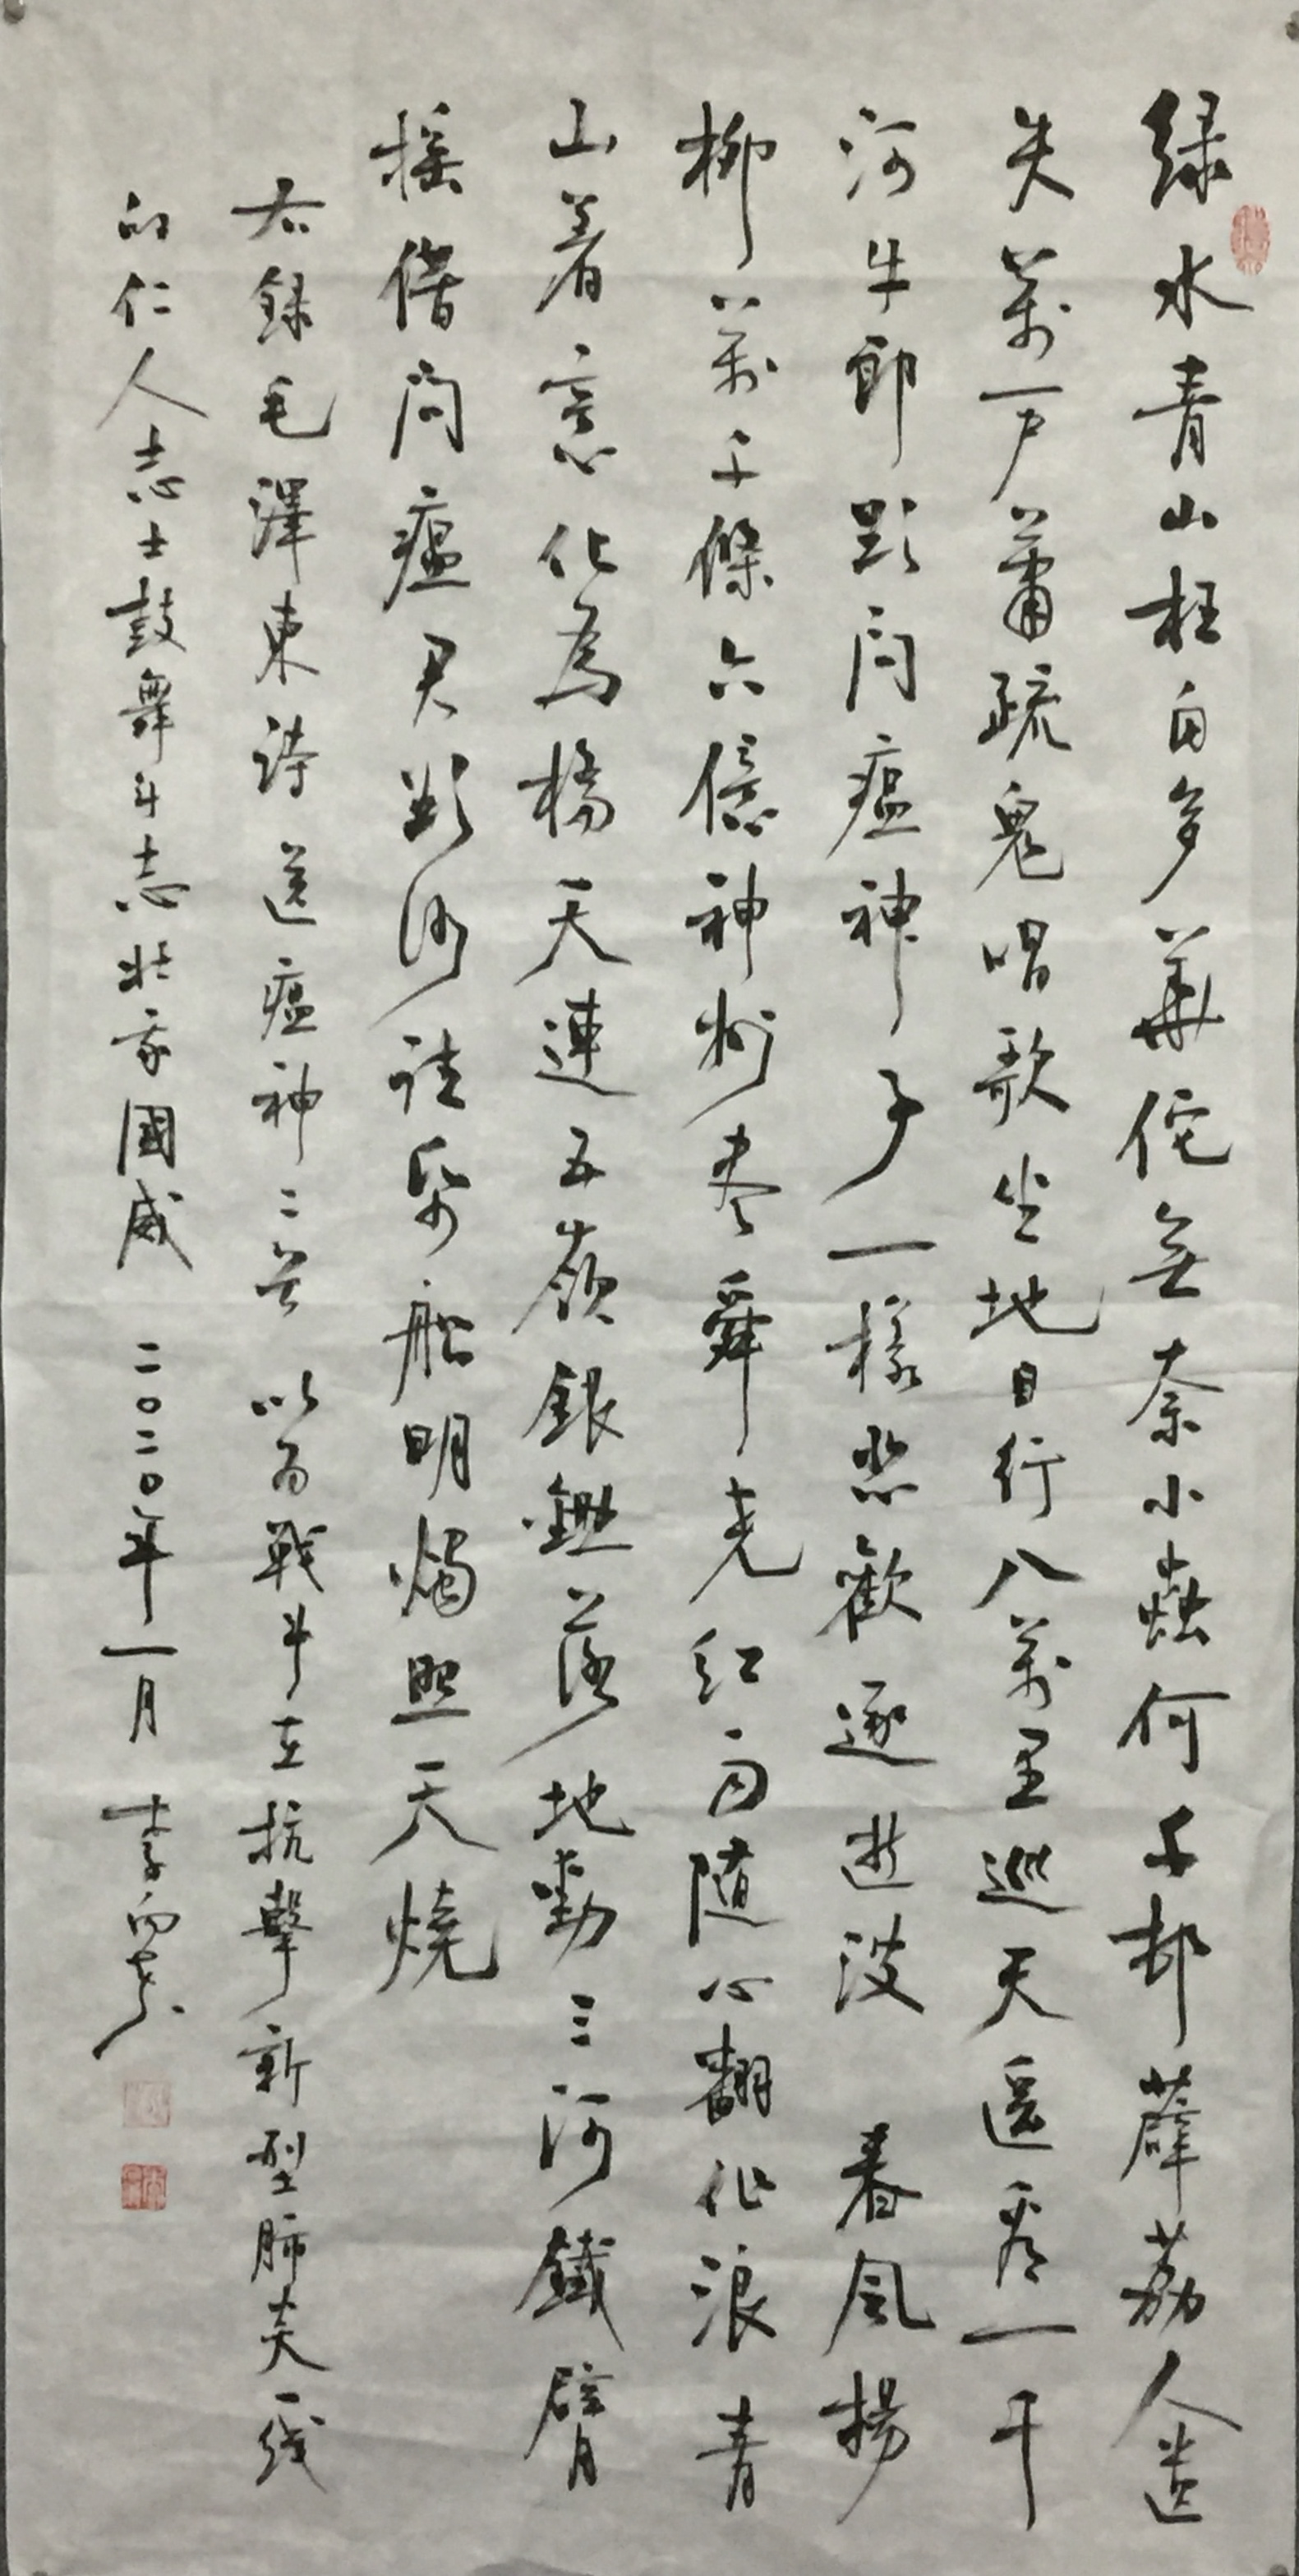 緑水青山枉自多華佗無奈小蟲何千邨薜荔人遺
失萬户蕭疏鬼唱歌坐地日行八萬里巡天遥看一千
河牛郎欲问瘟神子一樣悲歡逐逝波春風揚
柳萬千條六億神州尽舜尧红雨随心翻作浪青
山着意化為橋天連五嶺銀鋤落地動三河鐵臂
摇借问瘟君欲何往紙船明燭照天燒
右録毛澤東詩送瘟神二首以為戰斗在抗擊新型肺炎一线
的仁人志士鼓舞斗志壯我國威二〇二〇年一月李